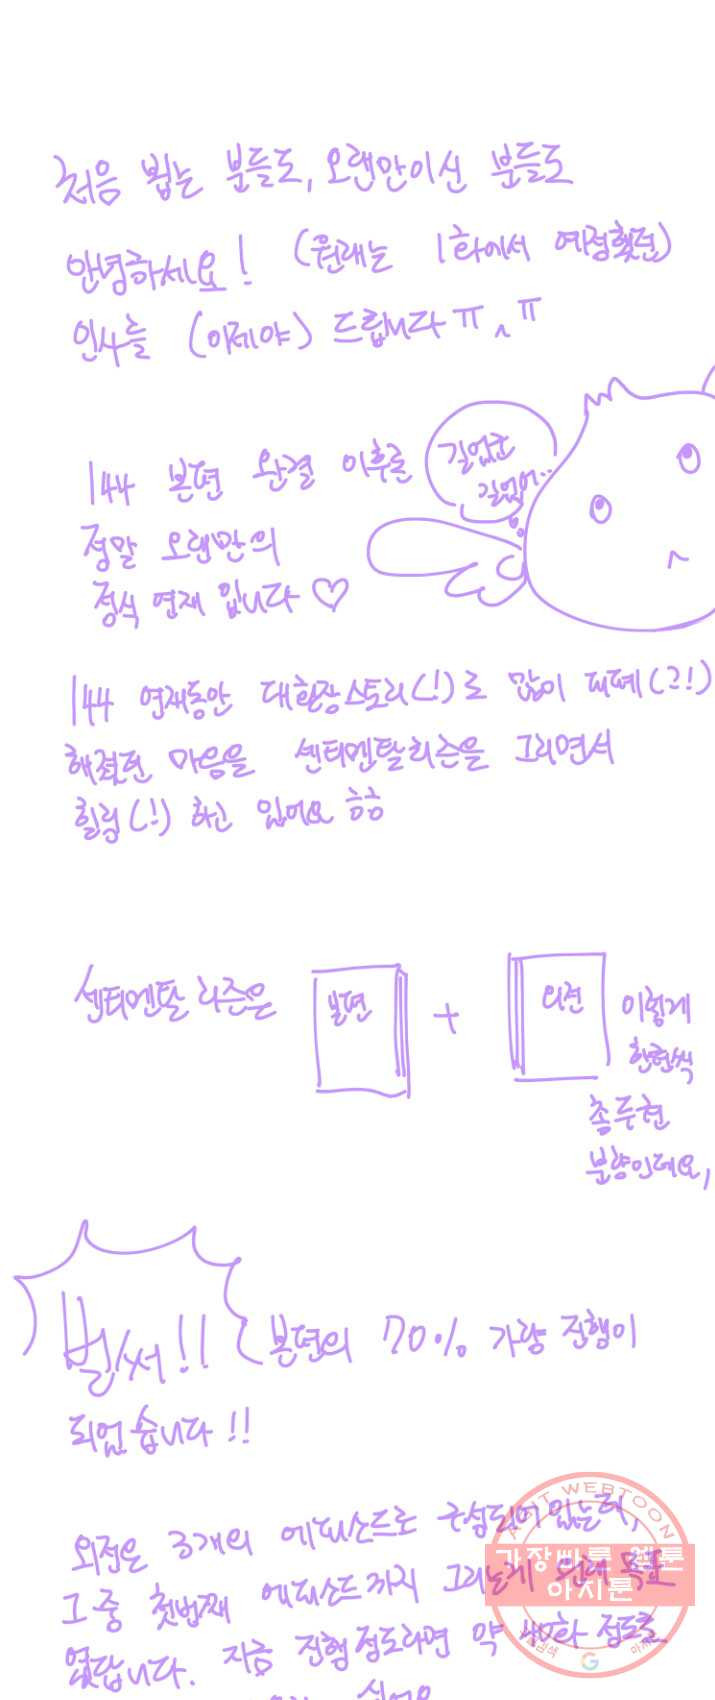 처음 뵙는 분들도, 오랜만이신 분들도
안녕하세요! (원래는 1화에서 예정했던)
인사를 (이제야) 드립니다ㅠ^ㅠ
길었군
길었어..
144 본편 완결 이후로
정말 오랜만의
정식 연재 입니다♡
144 연재동안 대환장스토리(!)로 많이 피폐(?!)
해졌던 마음을 센티멘탈리즘을 그리면서
힐링(!) 하고 있어요 흐흐
센티멘탈리즘은
본편
+
외전
이렇게
한권씩
총 두권
분량인데요,
벌써!! 본편의 70% 가량 진행이
되었습니다!!
외전은 3개의 에피소드로 구성되어 있는데,
그 중 첫번째 에피소드까지 그리는게 원래 목표
였답니다. 지금 진행정도라면 약 화 정도로
싶어요
AGIT WEBTOON
가장빠른 웹툰
아지툰
G